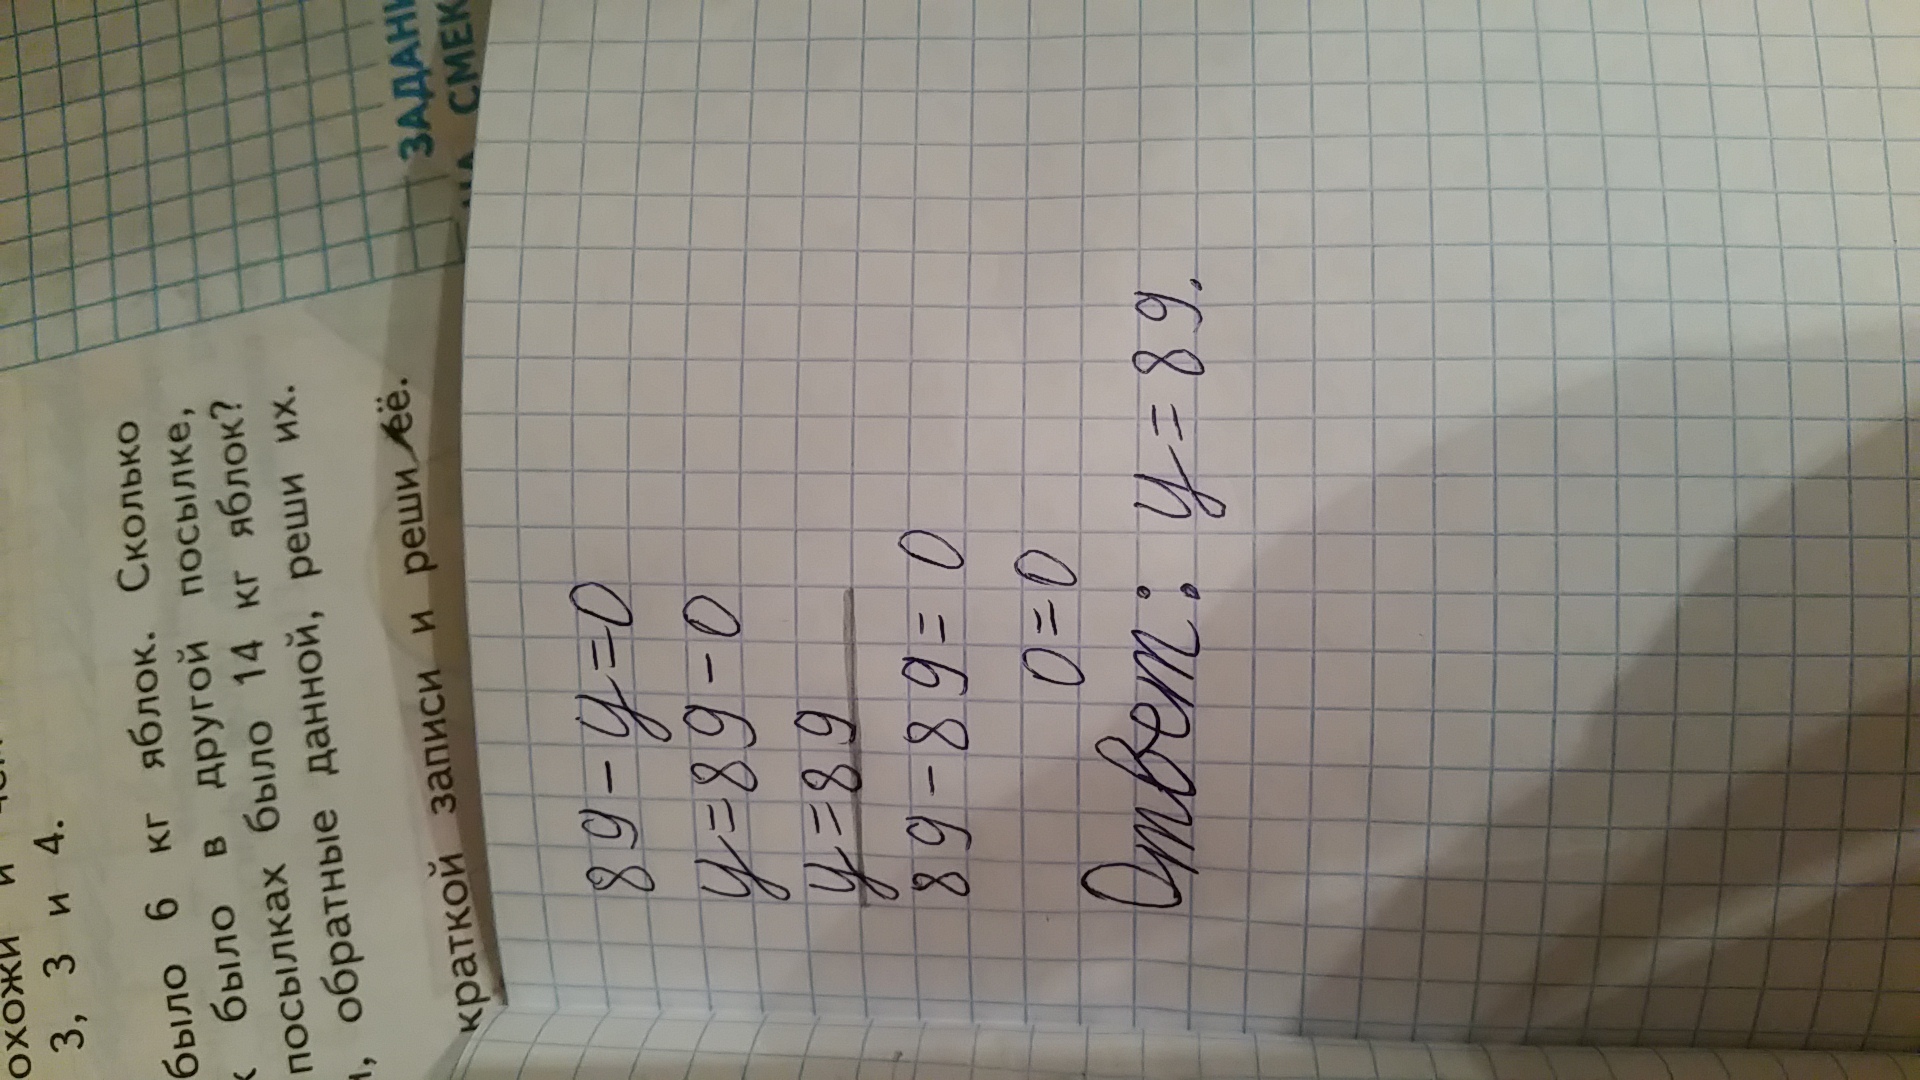 ЗАДАНИ
НА СМЕК
охожи и
3, 3 и 4.
было 6 кг яблок. Сколько
было в другой посылке,
посылках было 14 кг яблок?
, обратные данной, реши их.
краткой записи и реши её.
89-y=0
y=89-0
y=89
89-89=0
0=0
Ответ: y=89.